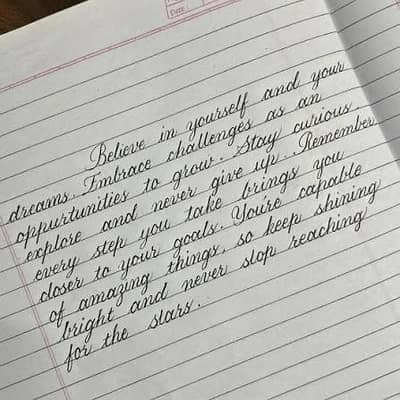 Date
Believe in yourself and your
dreams. Embrace challenges as an
oppurtunities to grow. Stay curious
explore and never give up. Remember
every step you take brings you
closer to your goals. You're capable
of amazing things, so keep shining
bright and never stop reaching
for the stars.